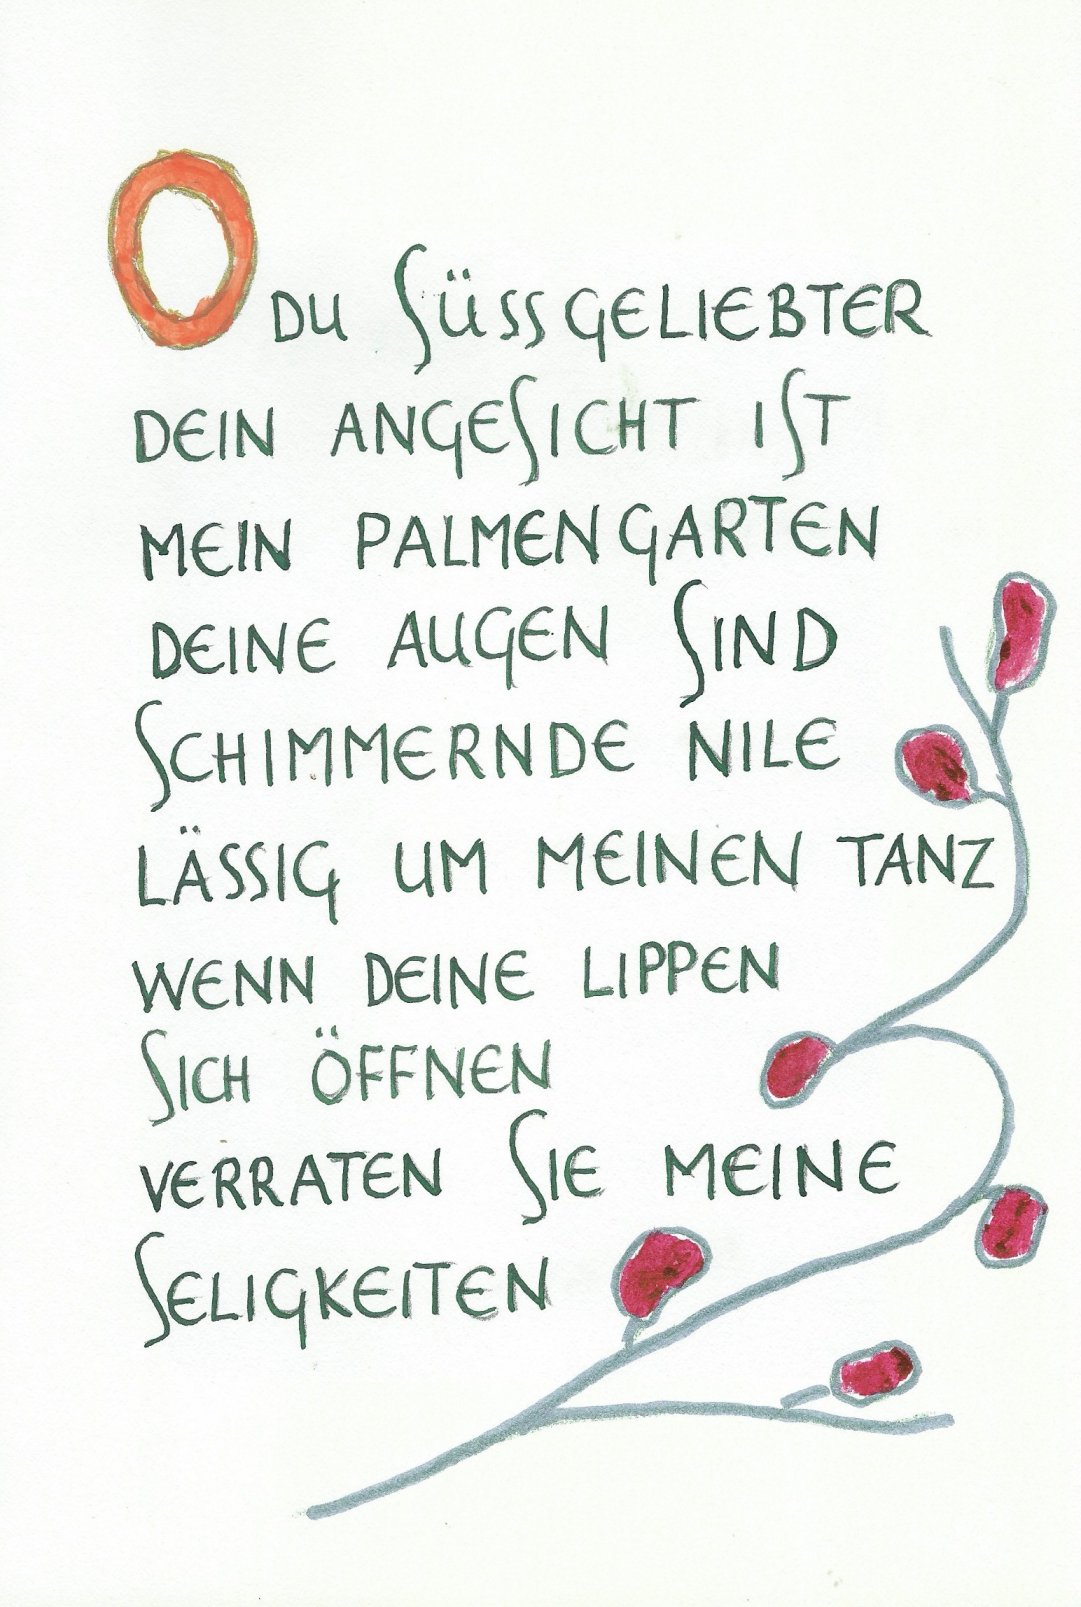 O DU SÜSSGELIEBTER
DEIN ANGESICHT IST
MEIN PALMENGARTEN
DEINE AUGEN SIND
SCHIMMERNDE NILE
LÄSSIG UM MEINEN TANZ
WENN DEINE LIPPEN
SICH ÖFFNEN
VERRATEN SIE MEINE
SELIGKEITEN